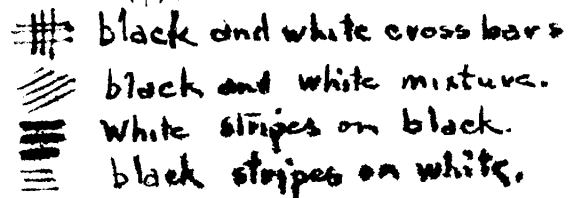 black and white cross bars
black and white mixture.
White stripes on black.
black stripes on white.